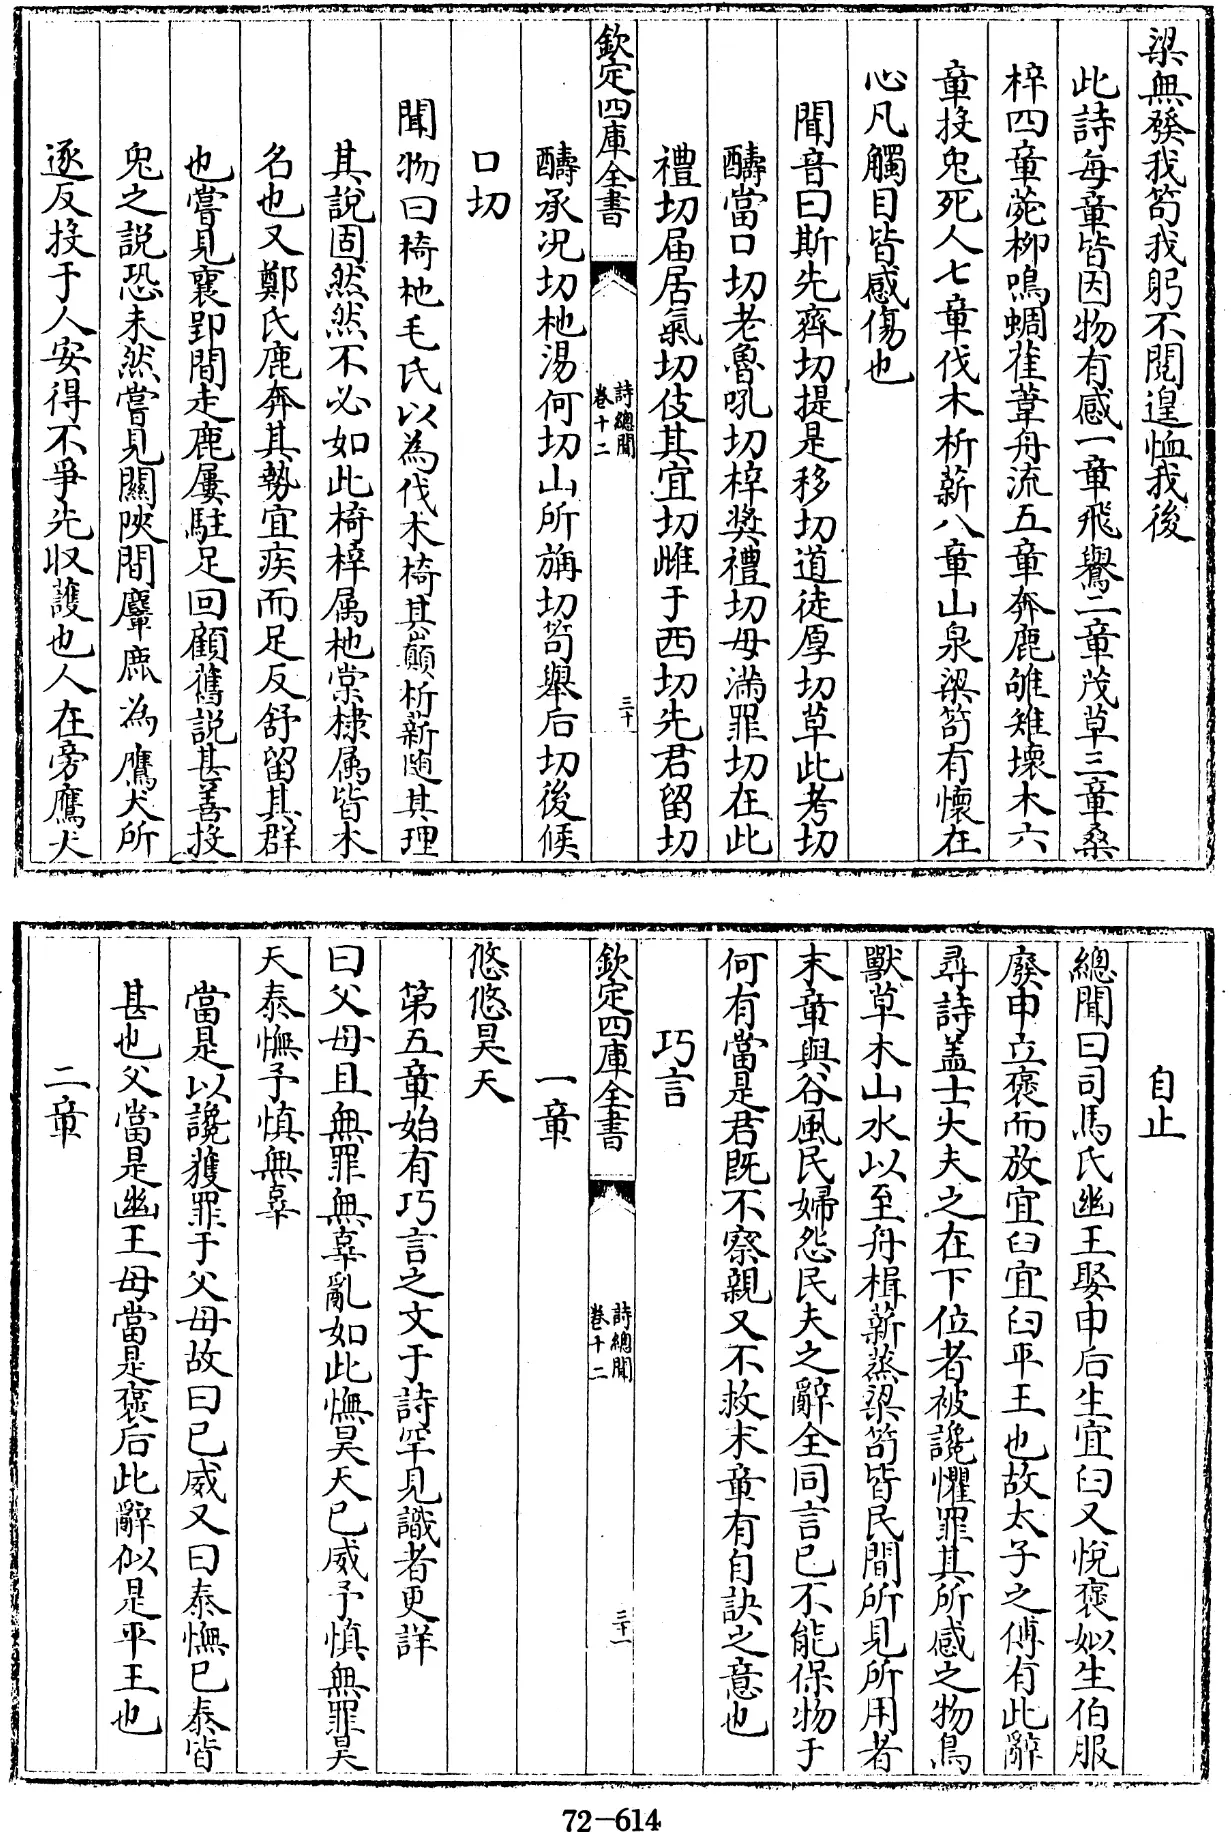 梁無發我笱我躬不閱遑恤我後
此詩每章皆因物有感一章飛鸒二章茂草三章桑
梓四章菀柳鳴蜩萑葦舟流五章奔鹿雊雉壞木六
章投兎死人七章伐木析薪八章山泉梁笱有懷在
心凡觸目皆感傷也
聞音曰斯先齊切提是移切道徒厚切草此考切
醻當口切老魯吼切梓奬禮切母滿罪切在此
禮切届居氣切伎其宜切雌于西切先君留切
欽定四庫全書
詩總聞
卷十二
三十
醻承况切杝湯何切山所旃切笱舉后切後候
口切
聞物曰椅杝毛氏以為伐木椅其巔析薪随其理
其說固然然不必如此椅梓属杝棠棣属皆木
名也又鄭氏鹿奔其勢宜疾而足反舒留其群
也嘗見襄郢間走鹿屢駐足回顧舊説甚善投
兎之説恐未然嘗見關陜間麞鹿為鷹犬所
逐反投于人安得不爭先収護也人在旁鷹犬
自止
總聞曰司馬氏幽王娶申后生宜臼又悅襃姒生伯服
廢申立褒而放宜臼宜臼平王也故太子之傅有此辭
尋詩盖士大夫之在下位者被讒懼罪其所感之物鳥
獸草木山水以至舟楫薪蒸梁笱皆民間所見所用者
末章與谷風民婦怨民夫之辭全同言已不能保物于
何有當是君既不察親又不救末章有自訣之意也
巧言
欽定四庫全書
詩總聞
卷十二
三十一
一章
悠悠昊天
第五章始有巧言之文于詩罕見識者更詳
曰父母且無罪無辜亂如此憮昊天已威予慎無罪昊
天泰憮予慎無辜
當是以讒獲罪于父母故曰已威又曰泰憮已泰皆
甚也父當是幽王母當是褒后此辭似是平王也
二章
72-614